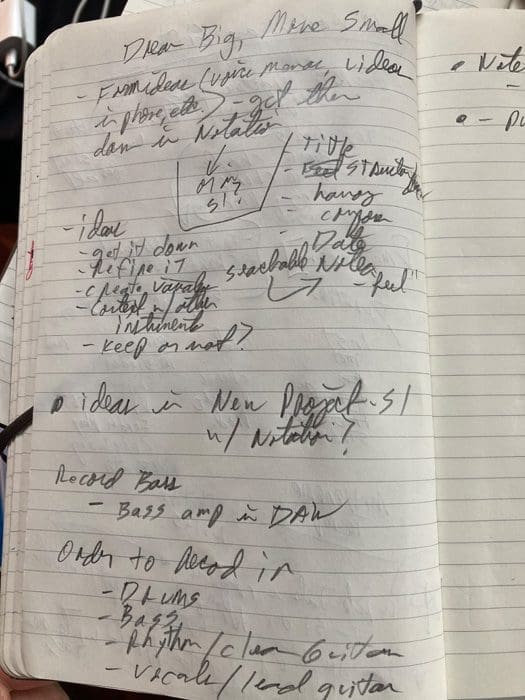 Dream Big, Move Small
- Form ideas (voice memos, videos
in phone, etc) - get them
down in Notation
Title
- structure
-
-
Date
searchable Notes
- feel"
- idea
- get it down
- Refine it
- create
- Context w/ other
instruments
- Keep or not?
• ideas in New Project
w/ Notation?
Record Bass
- Bass amp in DAW
Order to Record in
- Drums
- Bass
- Rhythm/clean Guitar
- Vocals/lead guitar
• Note
-